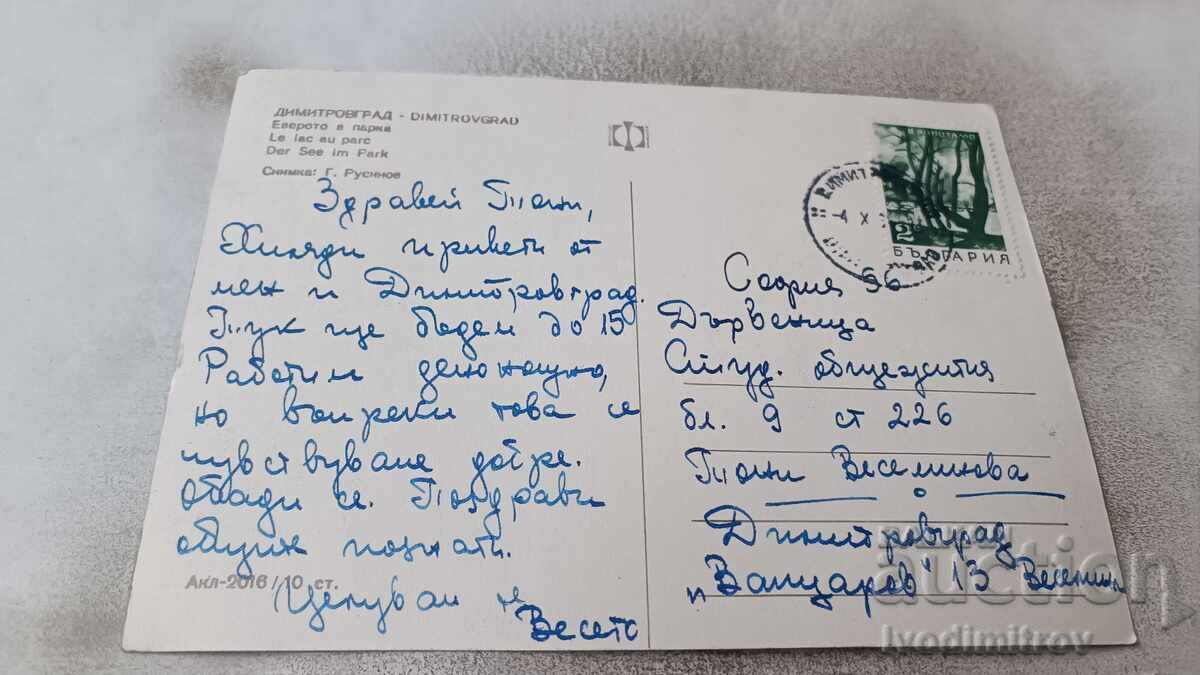 ДИМИТРОВГРАД - DIMITROVGRAD
Езерото в парка
Le lac au parc
Der See im Park
Снимка: Г. Русинов
Здравей Тони,
Хиляди привети от
мен и Димитровград.
Тук ще бъдем до 15
Работим денонощно,
но въпреки това се
чувстваме добре.
Обади се. Поздрави
общи познати.
Целувам те
Весето
Акл-2016/10 ст.
2
БЪЛГАРИЯ
4 X
София 56
Дървеница
Студ. общежития
бл. 9 ст 226
Тони Веселинова
Димитровград
"Вапцаров" 13
auction
Ivodimitrov